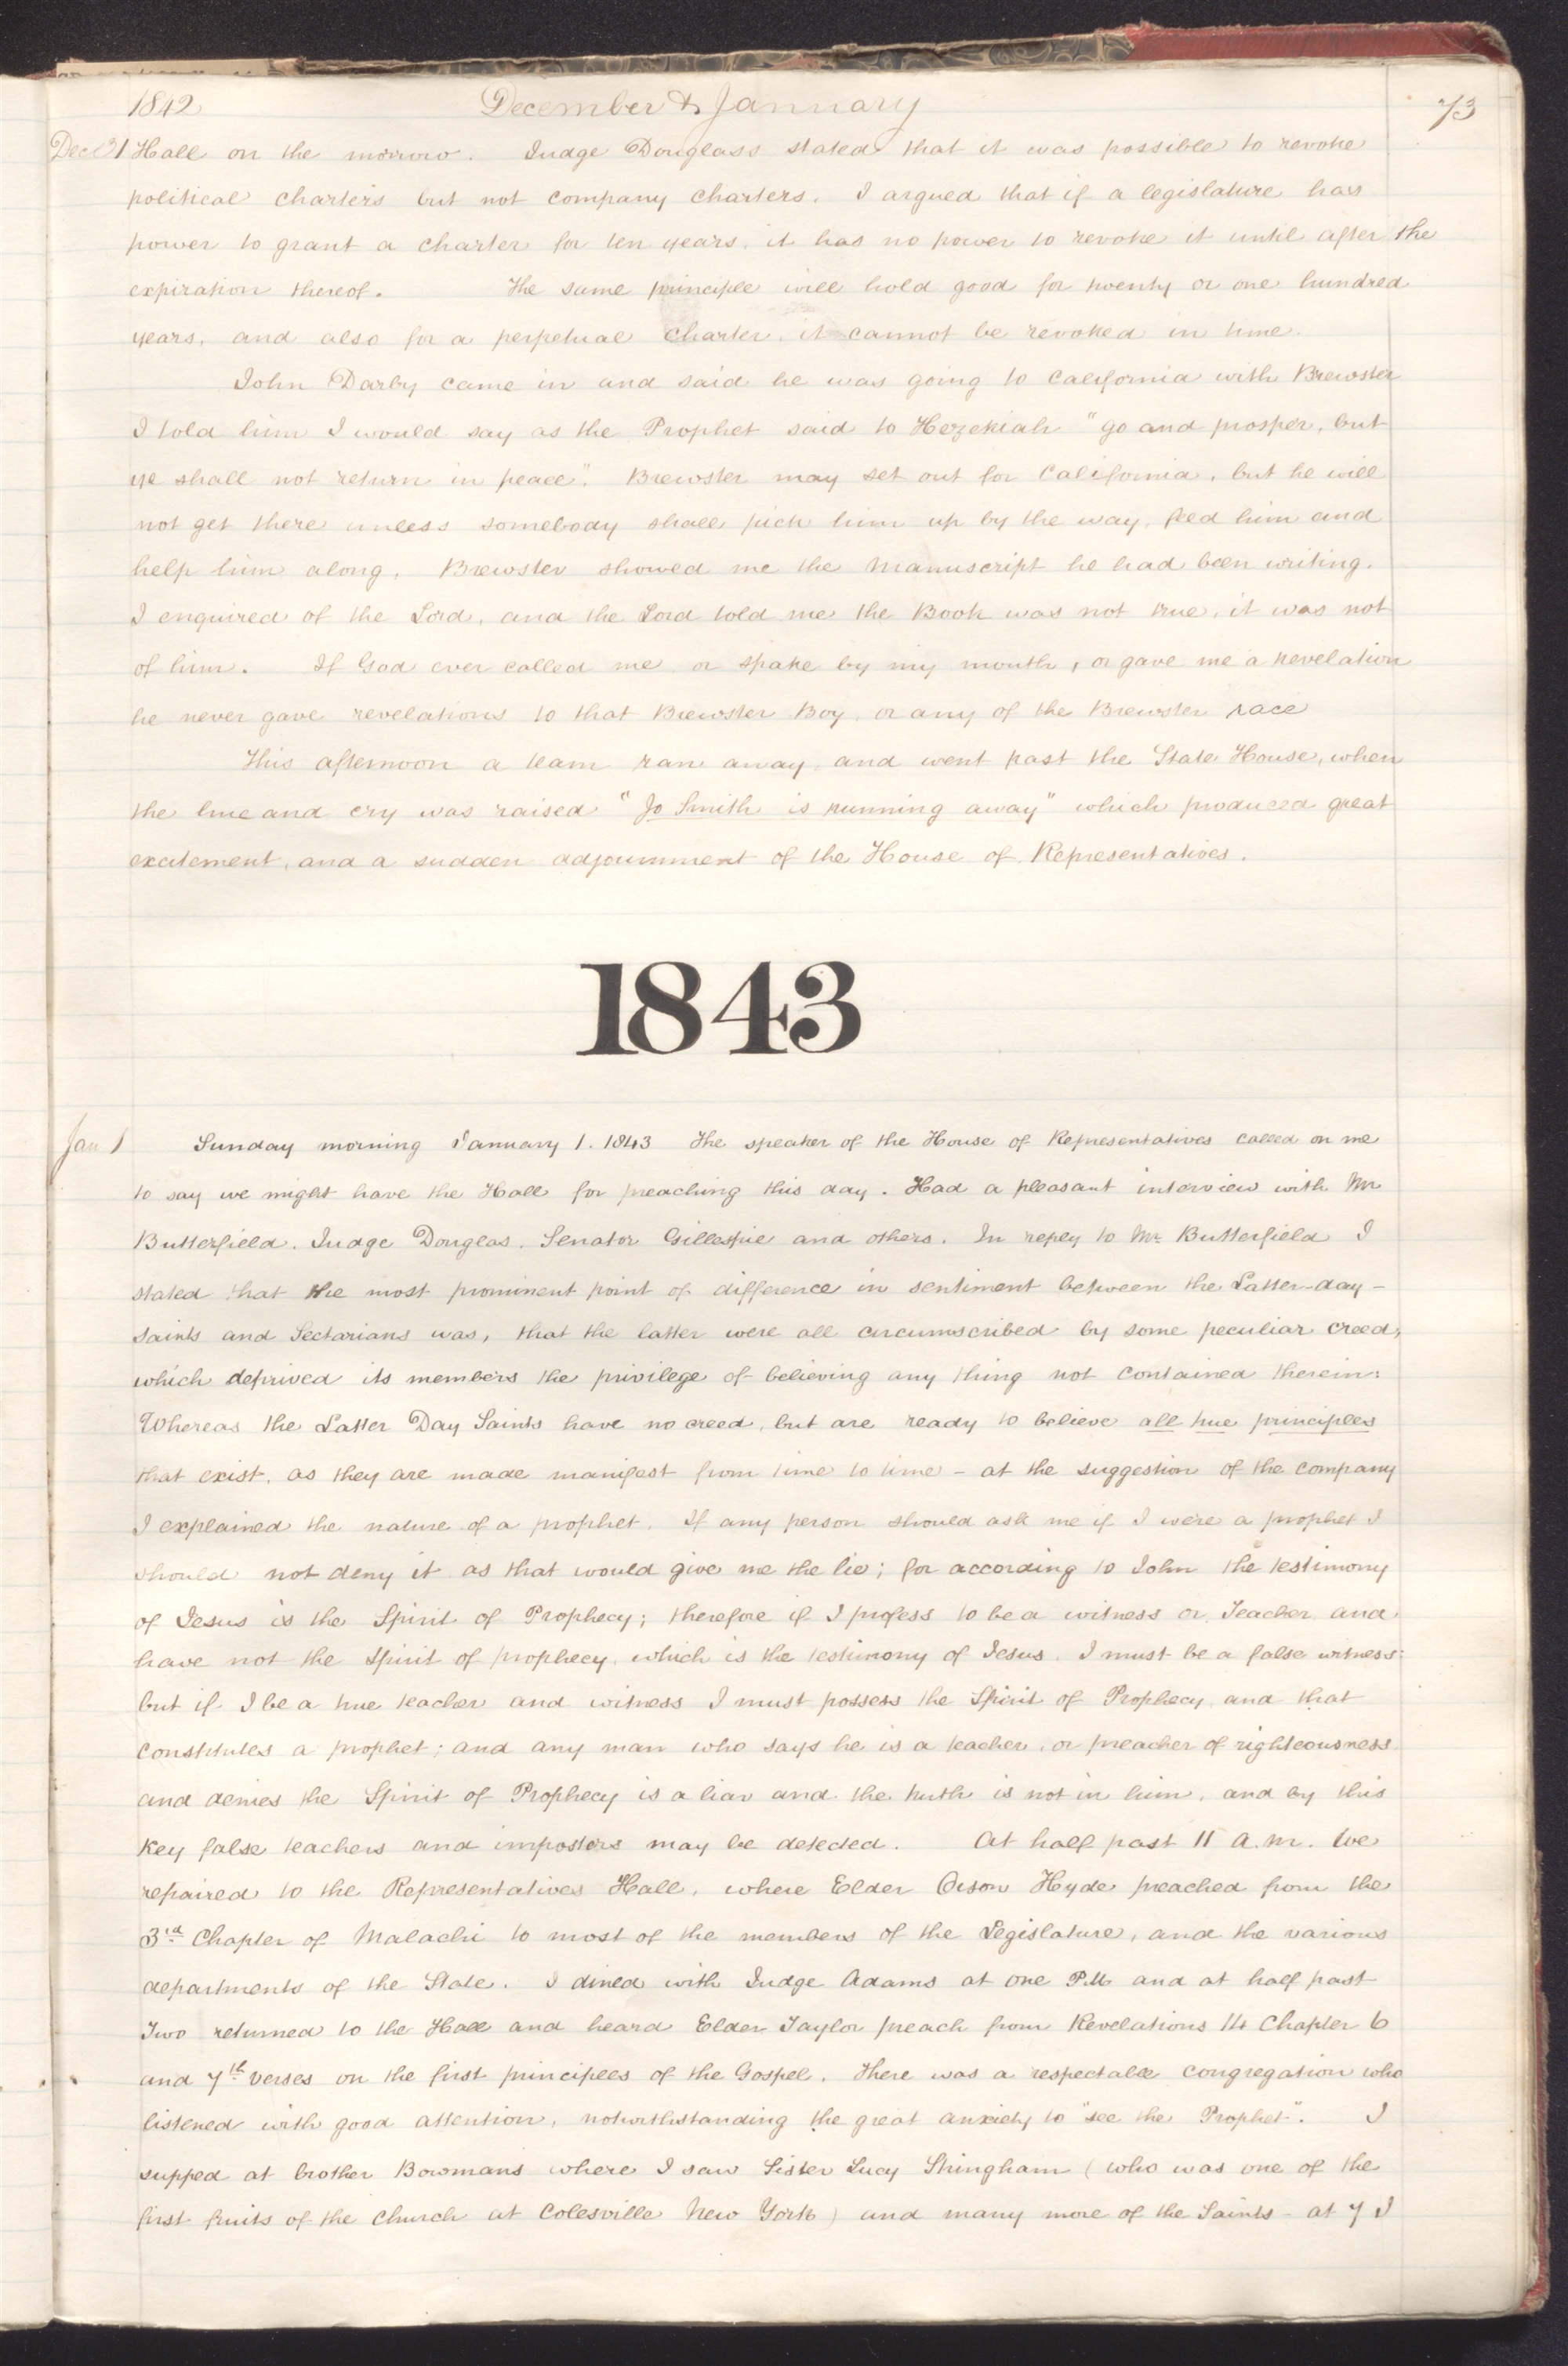 1842 December & January 73
Dec 31 Hall on the morrow. Judge Douglass stated that it was possible to revoke
political charters but not company charters. I argued that if a legislature has
power to grant a charter for ten years, it has no power to revoke it until after the
expiration thereof. The same principle will hold good for twenty or one hundred
years, and also for a perpetual charter, it cannot be revoked in time.
John Darby came in and said he was going to California with Brewster
I told him I would say as the Prophet said to Hezekiah "go and prosper, but
ye shall not return in peace". Brewster may set out for California, but he will
not get there unless somebody shall pick him up by the way, feed him and
help him along. Brewster showed me the Manuscript he had been writing.
I enquired of the Lord, and the Lord told me the Book was not true, it was not
of him. If God ever called me, or spake by my mouth, or gave me a revelation
he never gave revelations to that Brewster Boy, or any of the Brewster race
This afternoon a team ran away, and went past the State House, when
the hue and cry was raised "Jo Smith is running away" which produced great
excitement, and a sudden adjournment of the House of Representatives.
1843
Jan 1 Sunday morning January 1. 1843 The speaker of the House of Representatives called on me
to say we might have the Hall for preaching this day. Had a pleasant interview with Mr
Butterfield. Judge Douglas. Senator Gillespie and others. In reply to Mr Butterfield I
stated that the most prominent point of difference in sentiment between the Latter-day-
Saints and Sectarians was, that the latter were all circumscribed by some peculiar creed,
which deprived its members the privilege of believing any thing not contained therein:
Whereas the Latter Day Saints have no creed, but are ready to believe all true principles
that exist, as they are made manifest from time to time - at the suggestion of the company
I explained the nature of a prophet. If any person should ask me if I were a prophet I
should not deny it as that would give me the lie; for according to John the testimony
of Jesus is the Spirit of Prophecy; therefore if I profess to be a witness or Teacher and
have not the Spirit of prophecy, which is the testimony of Jesus. I must be a false witness:
but if I be a true teacher and witness I must possess the Spirit of Prophecy, and that
constitutes a prophet; and any man who says he is a teacher, or preacher of righteousness
and denies the Spirit of Prophecy is a liar and the truth is not in him, and by this
Key false teachers and impostors may be detected. At half past 11 a.m. we
repaired to the Representatives Hall, where Elder Orson Hyde preached from the
3rd Chapter of Malachi to most of the members of the Legislature, and the various
departments of the State. I dined with Judge Adams at one P.M and at half past
Two returned to the Hall and heard Elder Taylor preach from Revelations 14 Chapter 6
and 7th verses on the first principles of the Gospel. There was a respectable congregation who
listened with good attention, notwithstanding the great anxiety to "see the Prophet". I
supped at brother Bowmans where I saw Sister Lucy Stringham (who was one of the
first fruits of the church at Colesville New York) and many more of the Saints - at 7 I